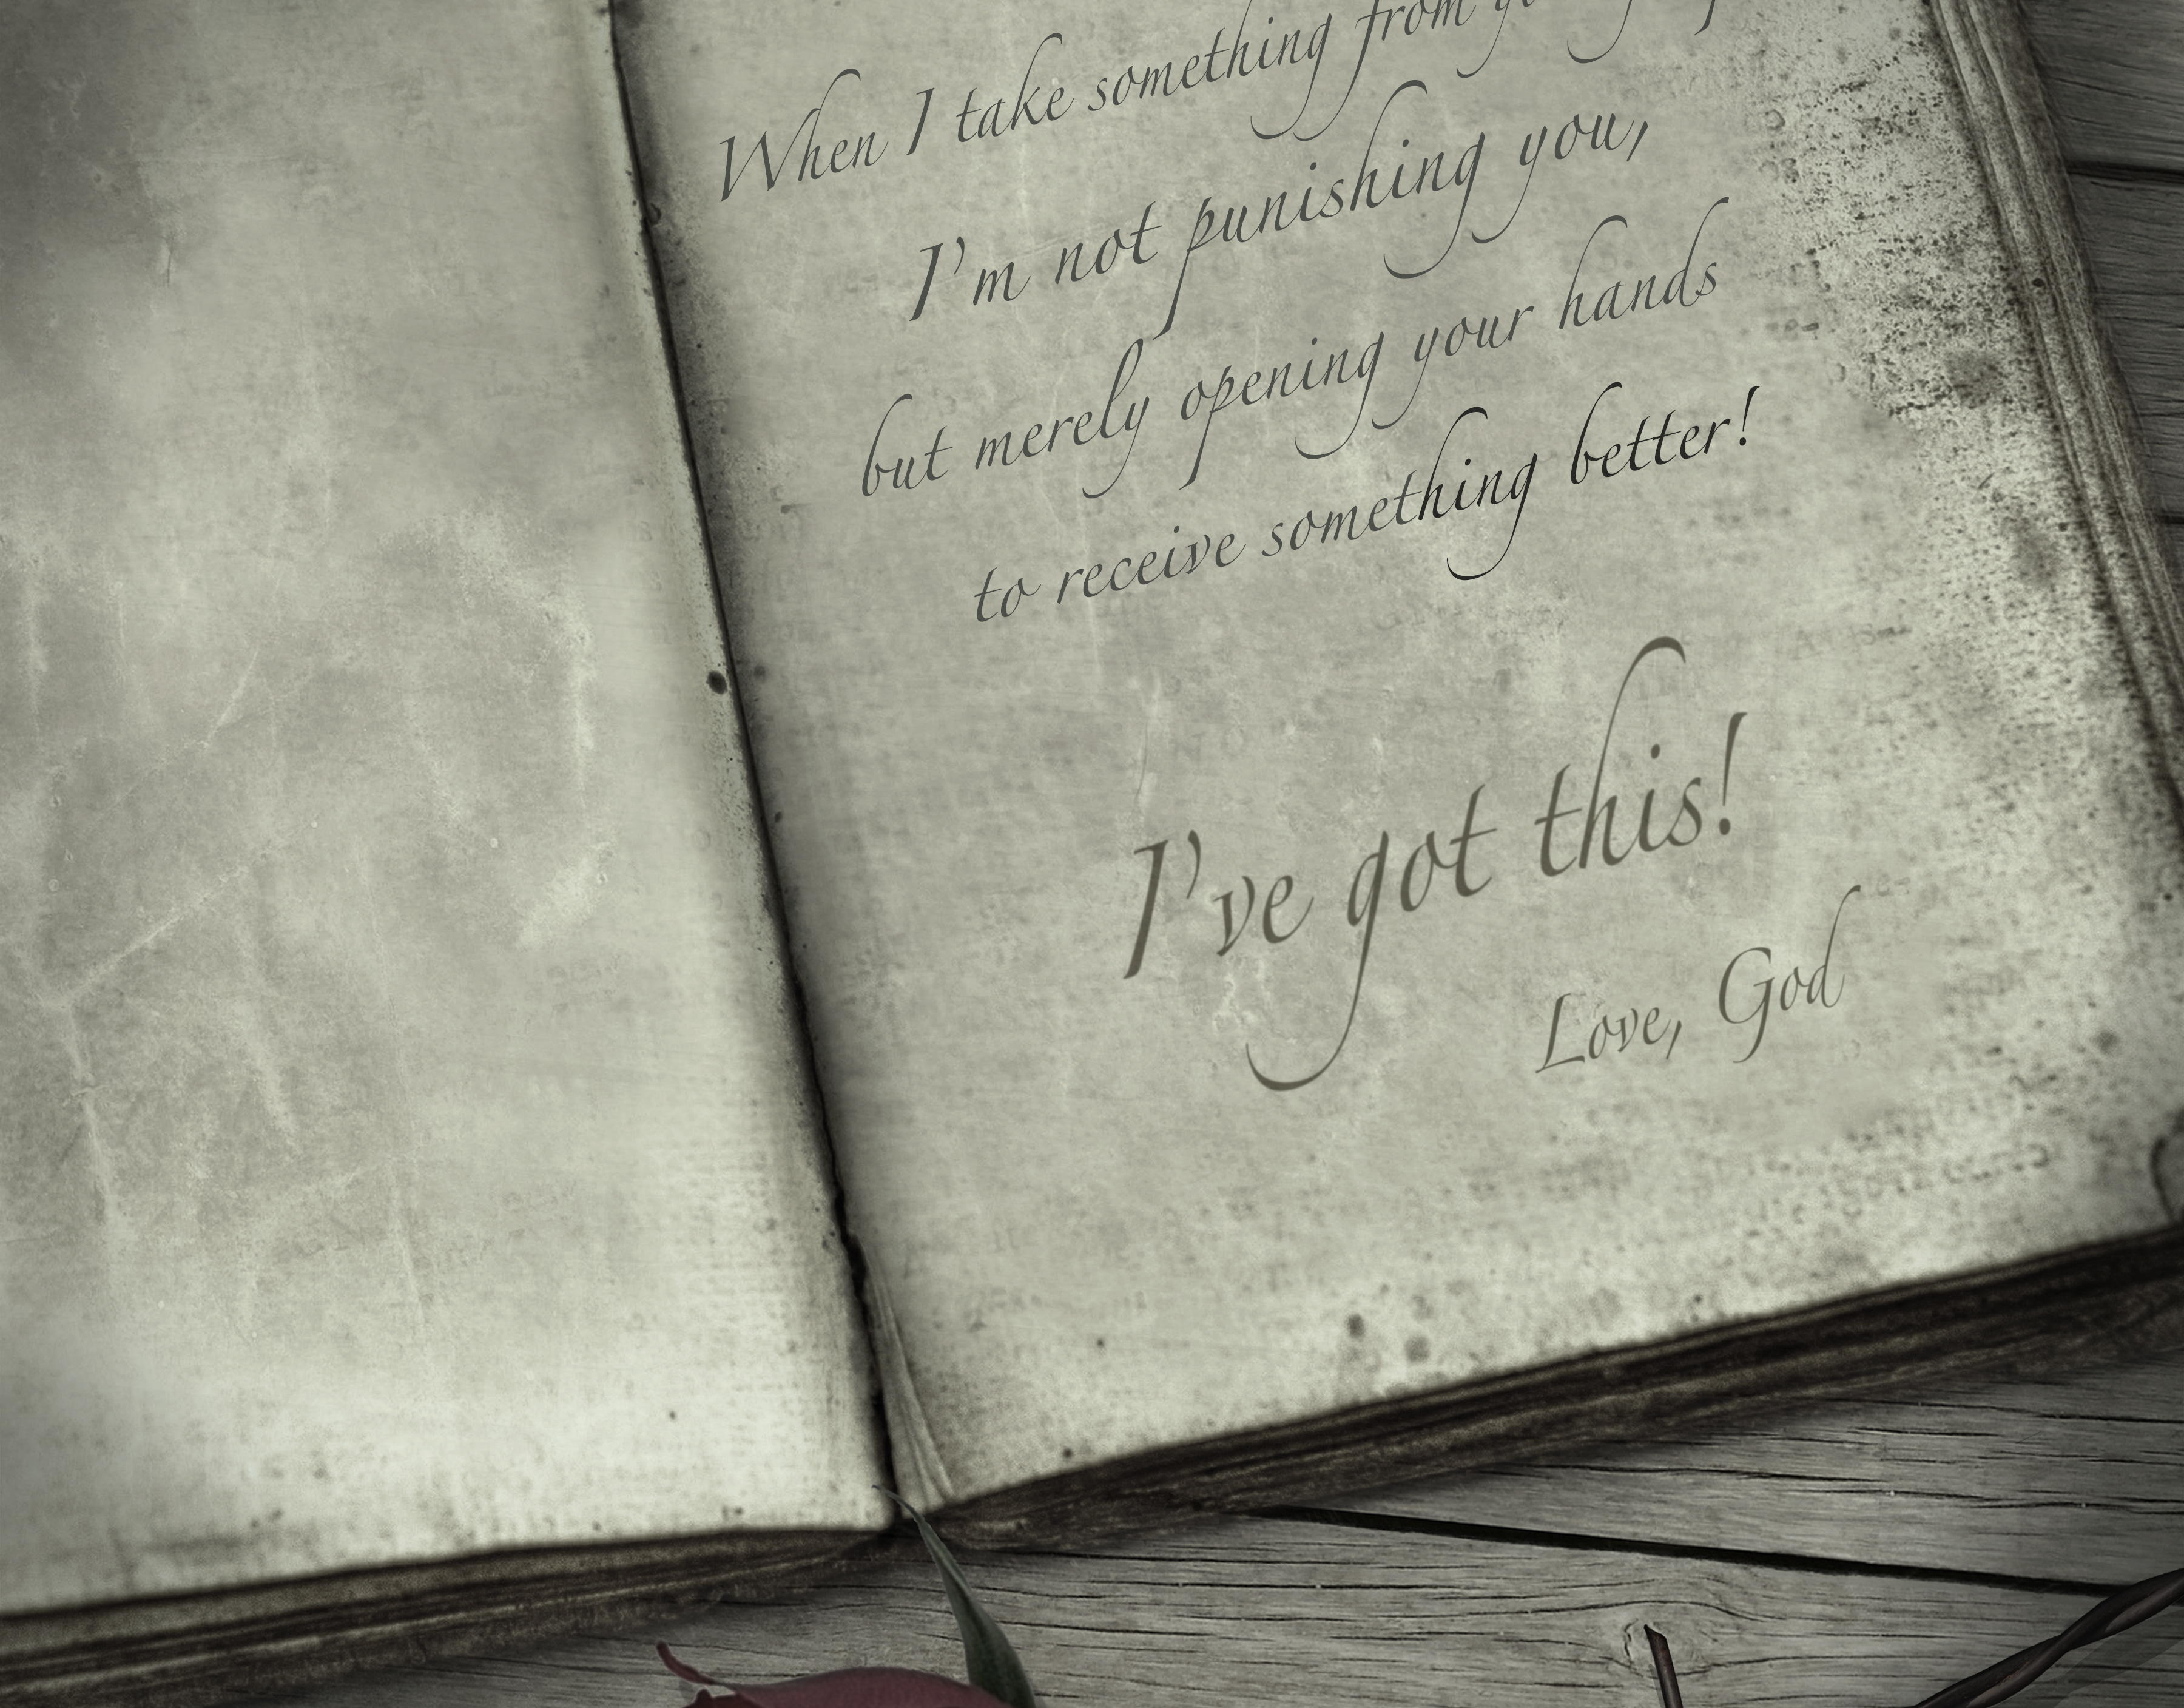 When I take something from
I'm not punishing you,
but merely opening your hands
to receive something better!
I've got this!
Love, God